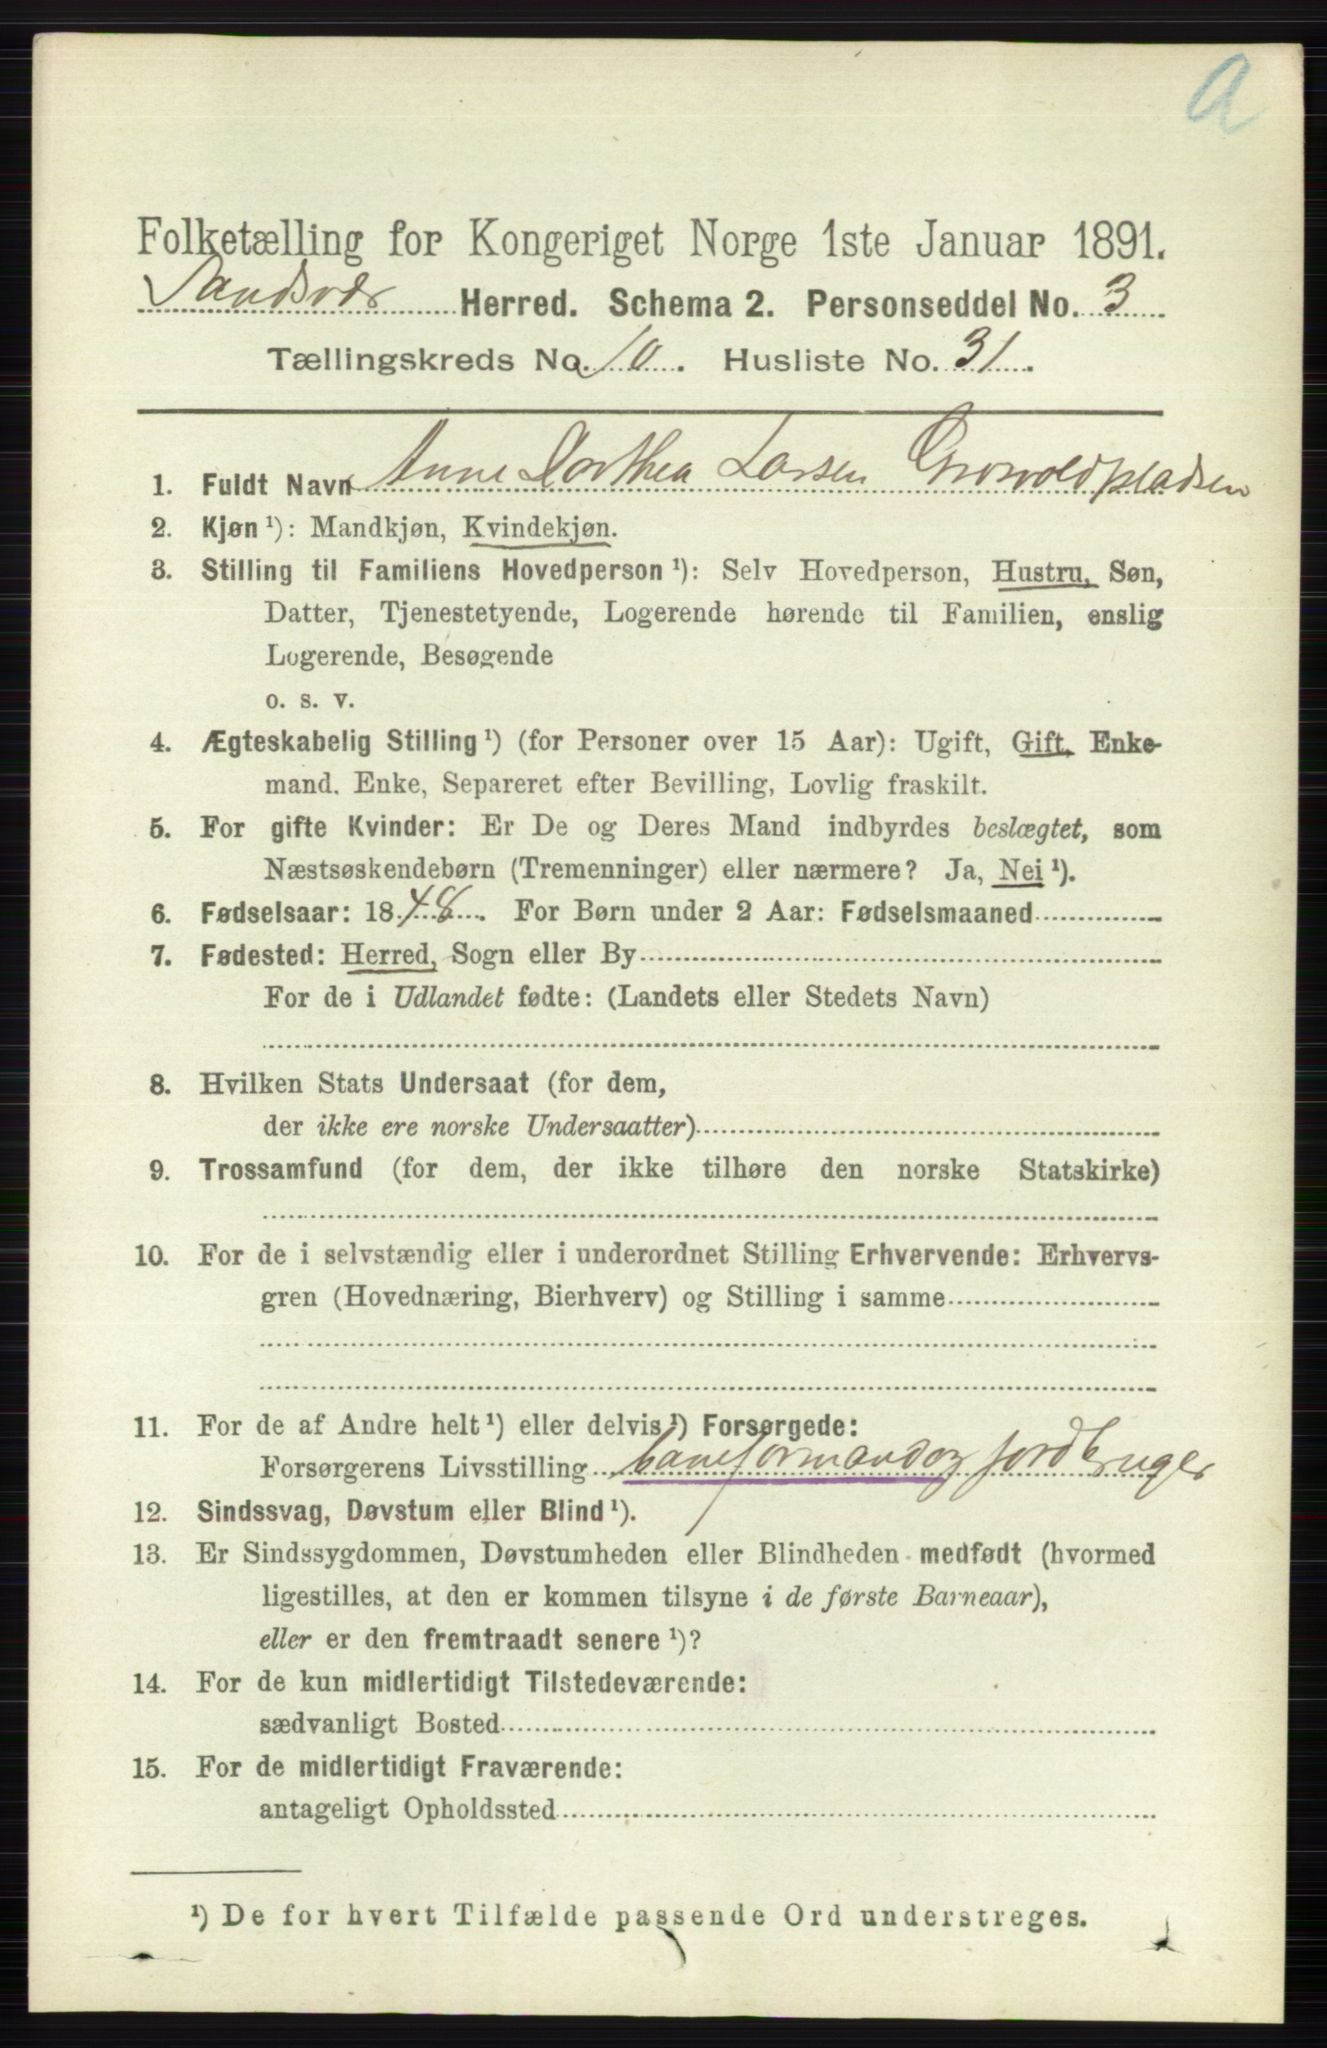 a
Folketælling for Kongeriget Norge 1ste Januar 1891.
Sandsvær Herred. Schema 2. Personseddel No. 3
Tællingskreds No. 10. Husliste No. 31.
1. Fuldt Navn Anne Dorthea Larsen Grosvoldpladsen
2. Kjøn ¹): Mandkjøn, Kvindekjøn.
3. Stilling til Familiens Hovedperson ¹): Selv Hovedperson, Hustru, Søn,
Datter, Tjenestetyende, Logerende hørende til Familien, enslig
Logerende, Besøgende
o. s. v.
4. Ægteskabelig Stilling ¹) (for Personer over 15 Aar): Ugift, Gift, Enke-
mand, Enke, Separeret efter Bevilling, Lovlig fraskilt.
5. For gifte Kvinder: Er De og Deres Mand indbyrdes beslægtet, som
Næstsøskendebørn (Tremenninger) eller nærmere? Ja, Nei ¹).
6. Fødselsaar: 1848. For Børn under 2 Aar: Fødselsmaaned
7. Fødested: Herred, Sogn eller By
For de i Udlandet fødte: (Landets eller Stedets Navn)
8. Hvilken Stats Undersaat (for dem,
der ikke ere norske Undersaatter)
9. Trossamfund (for dem, der ikke tilhøre den norske Statskirke)
10. For de i selvstændig eller i underordnet Stilling Erhvervende: Erhvervs-
gren (Hovednæring, Bierhverv) og Stilling i samme
11. For de af Andre helt ¹) eller delvis ¹) Forsørgede:
Forsørgerens Livsstilling baneformand og jordbruger
12. Sindssvag, Døvstum eller Blind ¹).
13. Er Sindssygdommen, Døvstumheden eller Blindheden medfødt (hvormed
ligestilles, at den er kommen tilsyne i de første Barneaar),
eller er den fremtraadt senere ¹)?
14. For de kun midlertidigt Tilstedeværende:
sædvanligt Bosted
15. For de midlertidigt Fraværende:
antageligt Opholdssted
¹) De for hvert Tilfælde passende Ord understreges.